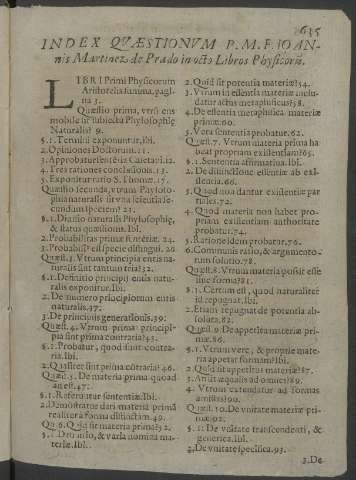 1615
INDEX QVÆSTIONVM P. M. F. IOAN-
nis Martinez de Prado in octo Libros Physicorũ.
LIBRI Primi Physicorum
Aristotelis summa, pagi-
na 3.
Quæstio prima, vtrũ ens
mobile sit subiectũ Phylosophię
Naturalis? 9.
§. 1. Termini exponuntur, ibi.
2. Opiniones Doctorum. 11.
3. Approbatur sentẽtia Caietani. 12.
4. Tres rationes conclusionis. 13.
5. Exponitur ratio S. Thomæ. 17.
Quæstio secunda, vtrum Phyloso-
phia naturalis sit vna scientia se-
cundum speciem? 23.
§. 1. Diuisio naturalis Phylosophię,
& status quæstionis. Ibi.
2. Probabilitas primæ sententiæ. 24.
3. Probabilis est specie distingui. 20
Quæst. 3. Vtrum principia entis na-
turalis sint tantum tria? 32.
§. 1. Definitio principij entis natu-
ralis exponitur. Ibi.
2. De numero principiorum entis
naturalis. 37.
3. De principiis generationis. 39.
Quæst. 4. Vtrum prima princi-
pia sint prima contraria? 43.
§. 1. Probatur, quod sunt contra-
ria. Ibi.
2. Qualiter sint prima cõtraria? 46.
Quæst. 5. De materia prima quoad
an est. 47.
§. 1. Referuntur sententiæ. Ibi.
2. Demonstratur dari materia primã
realiter à forma distinctam. 49.
Qu. 6. Quid sit materia prima? 51.
§. 1. Definitio, & varia nomina ma-
teriæ. Ibi.
2. Quid sit potentia materiæ? 54.
3. Vtrum in essentia materiæ inclu-
datur actus metaphysicus? 58.
4. De essentia metaphysica materiæ
primæ. 60.
5. Vera sententia probatur. 62.
Quæst. 7. Vtrum materia prima ha-
beat propriam existentiam? 65.
§. 1. Sententia affirmatiua. Ibi.
2. De distinctione essentiæ ab exi-
stentia. 66.
3. Quod non dantur existentiæ par-
tiales. 72.
4. Quod materia non habet pro-
priam existentiam authoritate
probatur. 74.
5. Ratione idem probatur. 76.
6. Communis ratio, & argumento-
rum solutio. 78.
Quæst. 8. Vtrum materia possit esse
sine forma? 81.
§. 1. Certum est, quod naturaliter
id repugnat. Ibi.
2. Etiam repugnat de potentia ab-
soluta. 82.
Quæst. 9. De appetitu materiæ pri-
mæ. 86.
§. 1. Vtrum vere, & proprie mate-
ria appetat formam? Ibi.
2. Quid sit appetitus materiæ? 87.
3. An sit æqualis ad omnes? 89.
4. Vtrum extendatur ad formas
amissas? 90.
Quæst. 10. De vnitate materiæ pri-
mæ. 92.
§. 1. De vnitate transcendenti, &
generica. Ibi.
2. De vnitate specifica. 93.
3. De